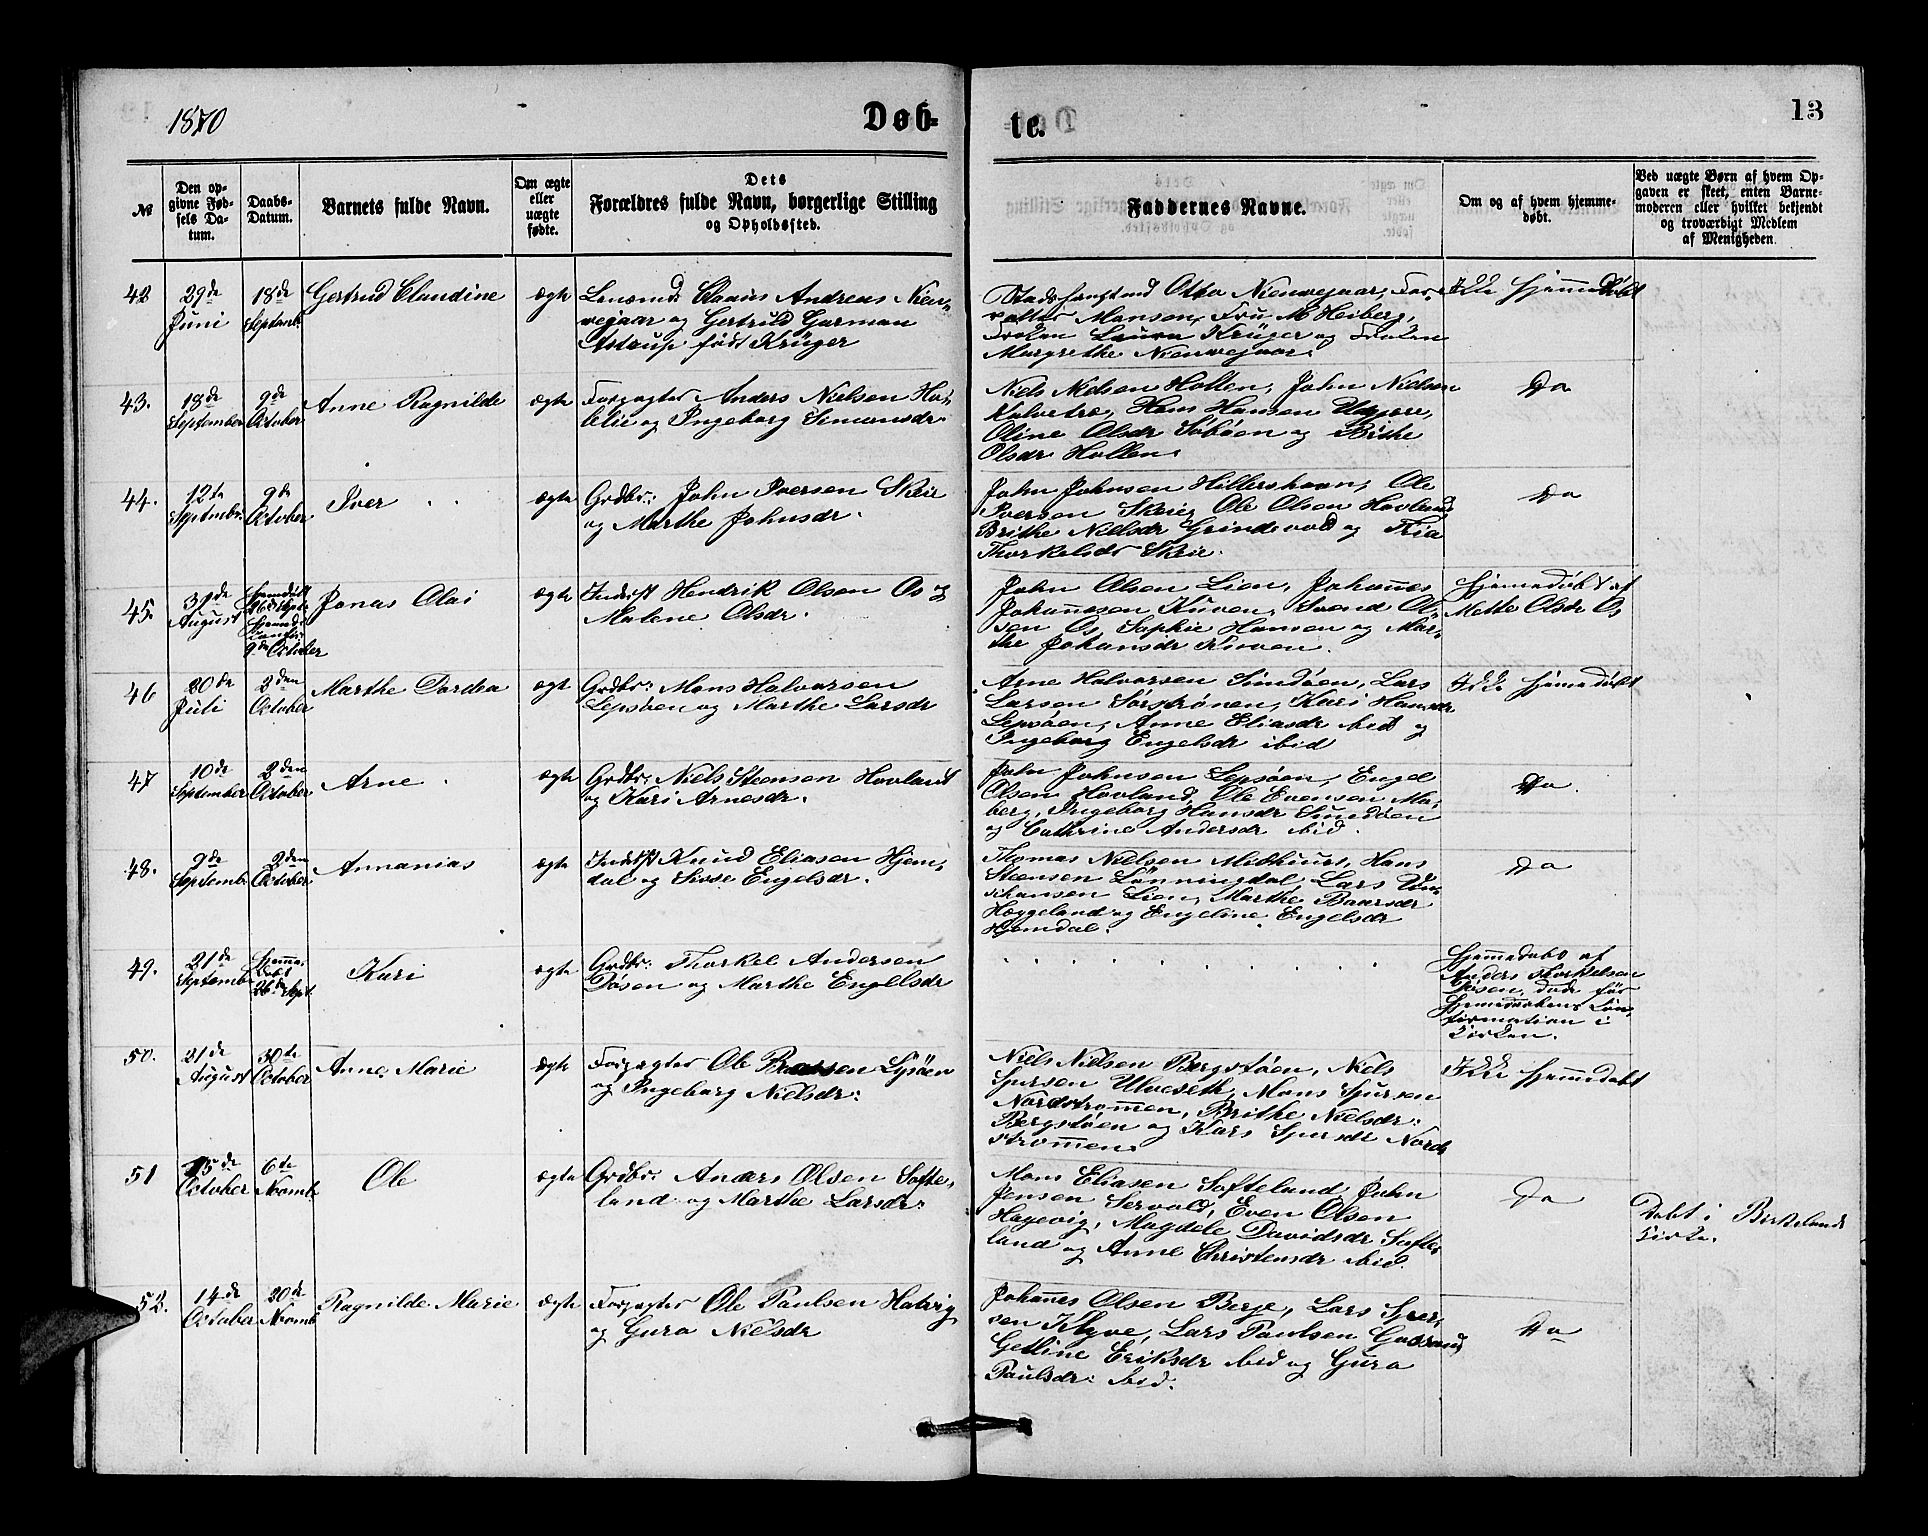 1870
Døb-
te.
13
No
Den op-
givne Fød-
sels Da-
tum.
Daabs-
Datum.
Barnets fulde Navn.
Om ægte
eller
uægte
fødte.
Dets
Forældres fulde Navn, borgerlige Stilling
og Opholdssted.
Faddernes Navne.
Om og af hvem hjemme-
døbt.
Ved uægte Børn af hvem Op-
gaven er skeet, enten Barne-
moderen eller hvilket bekjendt
og troværdigt Medlem
af Menigheden.
42
29de
Juni
18de
Septemb.
Gertrud Claudine
ægte
Lensmd: Claus Andreas Nien-
wejaar og Gertrud Garman
Astrup født Krüger
Otto Nienwejaar, For-
valter Monsen, Fru M Heiberg,
Frøken Laura Krüger og Frøken
Margrethe Nienwejaar.
Ikke hjemmedøbt
43.
18de
September
9de
October
Anne Ragnilde
ægte
Forpagter Anders Nielsen Hol-
og Ingeborg Simonsdr.
Niels Nielsen Holten, John Nielsen
Kalvetræ, Hans Hansen
Oline Olsdr Søbøen og Brithe
Olsdr Holten.
Do
44.
12te
Septmbr.
9de
October
Iver
ægte
Grdbr: John Iversen Skeie
og Marthe Johnsdr.
John Johnsen Hillershavn, Ole
Iversen Skeie, Ole Olsen Hovland
Brithe Nielsdr Grindevold og
Thorkelsdr Skeie.
Do
45.
31de
August
Hjemdøbt
Septbr
9de October
Jonas Olai
ægte
Inderst Hendrik Olsen Os og
Malene Olsdr.
John Olsen Lien, Johannes
Johannesen Kuven, Svend Ol-
sen Os, Sophie Hansen og Mar-
the Johansdr Kuven.
Hjemmedøbt af
Mette Olsdr Os
46
20de
Juli
2den
October
Marthe Dordea
ægte
Grdbr: Mons Halvorsen
Lepsøen og Marthe Larsdr
Arne Halvorsen Sundøen, Lars
Larsen Sørstrønen, Kari Hansdr
Lepsøen, Anne Eliasdr ibid og
Ingeborg Engelsdr ibid
Ikke hjemmedøbt
47
10de
September
2den
October
Arne
ægte
Grdbr: Niels Steensen Hovland
og Kari Arnesdr.
John Johnsen Lepsøen, Engel
Olsen Hovland, Ole Evensen Mo-
berg, Ingeborg Hansdr Sundøen
og Cathrine Andersdr ibid.
Do.
48.
9de
Septemb.
2den
October
Annanias
ægte
Inderst Knud Eliasen Hjem-
dal og Engelsdr.
Thomas Nielsen Midhuus, Hans
Steensen Lønningdal, Lars
Lien, Marthe Baarsdr
Hæggeland og Engeline Engelsdr
Hjemdal.
Do
49.
21de
Septemb.
Hjemme-
døbt
26de Sept.
Kari
ægte
Grdbr: Thorkel Andersen
Døsen og Marthe Engelsdr
Hjemmedøbt af
Anders Thorkelsen
Døsen, døde før
Hjemmedaabens Con-
firmation i
Kirken.
50.
21de
August
30te
October
Anne Marie
ægte
Forpagter Ole Lysøen
og Ingeborg Nielsdr:
Niels Nielsen Bergstøen, Niels
Sjursen Ulveseth, Mons Sjursen
Nordstrømmen, Brithe Nielsdr:
Bergstøen og Kari Sjursdr Nord-
strømmen.
Ikke hjemmedøbt
51
15de
October
6te
Novmb.
Ole
ægte
Grdbr: Anders Olsen Softe-
land og Marthe Larsdr:
Mons Eliasen Softeland, John
Jensen Servold, Even Olsen
Hagevig, Magdele Davidsdr Softe-
land og Anne Christensdr ibid.
Do
Døbt i Birkelands
Kirke.
52.
14de
October
20de
Novmb.
Ragnilde Marie
ægte
Forpagter Ole Paulsen Hatvig
og Guro Nielsdr
Johannes Olsen Berge, Lars Iver-
sen Klyve, Lars Paulsen
Getline Eriksdr ibid og Guro
Paulsdr: ibid.
Do